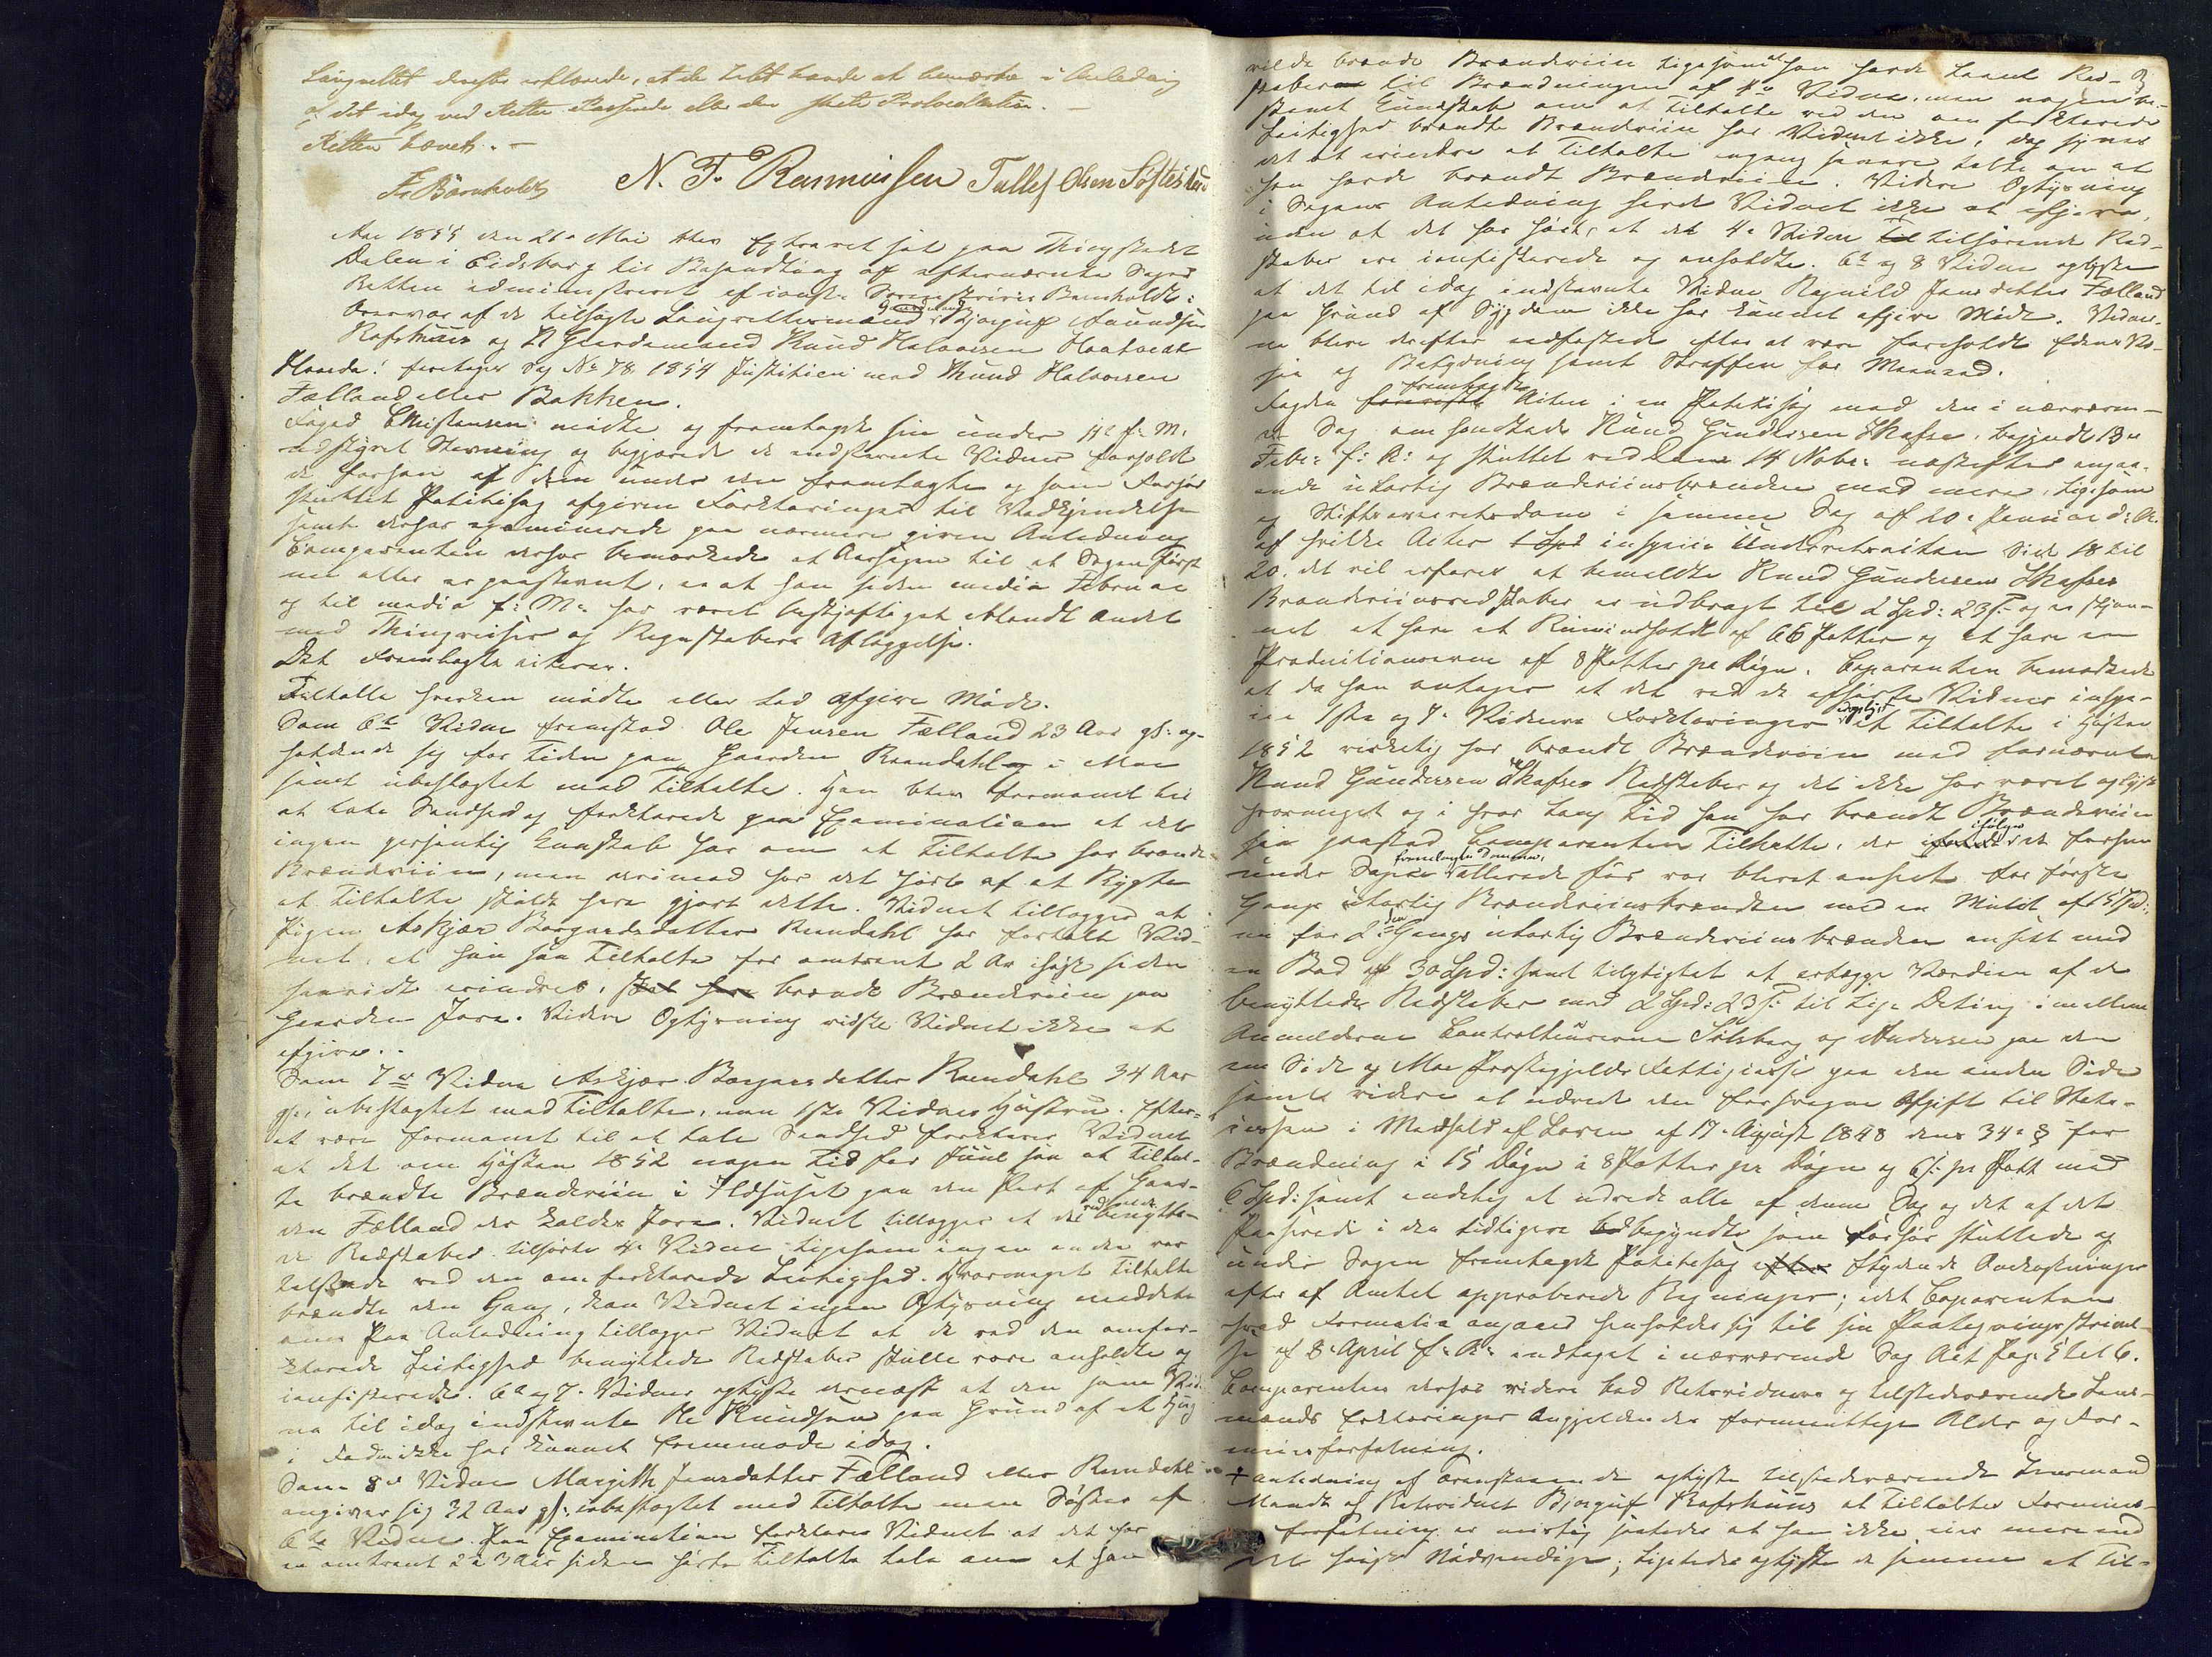 Laugrettet ansete erklærede, at de Intet havde at bemærke i Anledning
af det idag ved Retten Passerede eller den skete Protocollation. –
Retten hævet. –
Fr Barnholdt N. T. Rasmussen Tallef Olsen Softestad
Aar 1855 den 26 Mai blev Extraret sat paa Thingstedet
Dalen i Eidsborg til Behandling af efternævnte Sager
Retten administreret af const: Sorenskriver Barnholdt:
Overvær af de tilsagte Laugrettesmænd Gaardmand Bjorguf Aamundsen
Rafshuus og Gaardmand Knud Halvorsen Haatvedt
Hvorda: foretages Sag No 78 1854 Justitien mod Knud Halvorsen
Fælland eller Bakken.
Foged Christensen mødte og fremlagde sin under 14 f: M:
udstyret Stevning og begjærede de indstevnte Vidner foreholdt
de forhen af dem under den fremlagte og som Forhør
sluttet Politisag afgivne Forklaringer til Vedkjendelse
samt derhos examinerede paa nærmere given Anledning
Comparenten derhos bemærkede at Aarsagen til at Sagen først
nu atter er paastevnt, er at han siden medio Februar
og til medio f: M: har været beskjæftiget iblandt Andet
med Thingreiser og Regnskabers Aflæggelse.
Det Fremlagte acteres.
Tiltalte hverken mødte eller lod afgive Møde.
Som 6te Vidne fremstod Ole Jensen Fælland 23 Aar gl: op-
holdende sig for Tiden paa Gaarden Rundahl i Moe
samt ubeslægtet med Tiltalte. Han blev formanet til
at tale Sandhed og forklarede paa Examination at det
ingen personlig Kundskab har om at Tiltalte har brændt
Brændeviin, men derimod har det hørt af et Rygte
at Tiltalte skulde have gjort dette. Vidnet tillægger at
Pigen Askjær Borgarsdatter Rundahl har fortalt Vid-
net, at hun saa Tiltalte for omtrent 2 Aar ihøst siden
saavidt erindres, brænde Brændeviin paa
Gaarden Jore. Videre Oplysning vidste Vidnet ikke at
afgive. –
Som 7de Vidne Askjær Borgarsdatter Rundahl 34 Aar
gl:, ubeslægtet med Tiltalte, men 1ste Vidnes Hustru. Efter
at være formanet til at tale Sandhed forklarer Vidnet
at det om Høsten 1852 nogen Tid før Juul saa at Tiltal-
te brændte Brændeviin i Ildhuset paa den Part af Gaar-
den Fælland der kaldes Jore. Vidnet tillægger at de benytte-
de Redskaber tilhørte 4de Vidne ligesom ingen anden var
tilstede ved den omforklarede Leilighed. Hvormeget Tiltalte
brændte den Gang, kan Vidnet ingen Oplysning meddele
om. Paa Anledning tillægger Vidnet at de ved den omfor-
klarede Leilighed benyttede Redskaber skulle være anholdte og
confiskerede. 6te og 7de Vidner oplyste dernæst at den som Vid-
ne til idag indstevnte Ole Knudsen paa Grund af et Hug
i Foden ikke har kunnet fremmøde idag.
Som 8de Vidne Margith Jensdatter Fælland eller Rundahl
angiver sig 32 Aar gl: ubeslægtet med Tiltalte men Søster af
6te Vidne. Paa Examination forklarer Vidnet at det for
en omtrent 2 à 3 Aar siden hørte Tiltalte tale om at han
vilde brænde Brændeviin ligesom at han havde laant Red-
skaber til Brændningen af 4de Vidne, men nogen be-
stemt Kundskab om at Tiltalte ved den omforklarede
Leilighed brændte Brændeviin har Vidnet ikke, dog synes
det at erindre at Tiltalte engang senere talte om at
han havde brændt Brændeviin. Videre Oplysning
i Sagens Anledning havde Vidnet ikke at afgive,
uden at det har hørt, at det 4de Vidne tilhørende Red-
skaber ere confiskerede og anholdte. 6te og 8de Vidne oplyste
at det til idag indstevnte Vidne Ragnild Jensdatter Fælland
paa Grund af Sygdom ikke har kunnet afgive Møde. Vidner-
ne bleve derefter edfæstede efter at være foreholdt Edens Vær-
die og Betydning samt Straffen for Meened.
Fogden fremlagde Acten i en Politisag mod den i nærværen-
de Sag omhandlede Knud Gundersen Skafsaa, begyndt 13de
Febr: f: A: og sluttet ved Dom 14 Novbr: næstefter angaa-
ende ulovlig Brændeviinsbrænden med mere, ligesom
og Stiftsoverretsdom i samme Sag af 20 Januar d: A.
af hvilke Acter inspecie Underretsacten Side 18 til
20. det vil erfares at bemeldte Knud Gundersen Skafsaas
Brændeviinsredskaber er udbragt til 2 Spd: 23 s: og er skjøn-
net at have et Rumindhold af 66 Potter og at have en
Productionsevne af 8 Potter pr Døgn. Comparenten bemærkede
at da han antager at det ved de afhørte Vidners inspe-
cie 1ste og 7de Vidners Forklaringer er oplyst at Tiltalte i Høsten
1852 virkelig har brændt Brændeviin med fornævnte
Knud Gundersen Skafsaas Redskaber og det ikke har været oplyst
hvormeget og i hvor lang Tid han har brændt Brændeviin
saa paastod Comparenten Tiltalte, der ifølge det forhen
under Sagen fremlagte Domme, allerede før var blevet anseet for første
Gang ulovlig Brændeviinsbrænden med en Mulct af 15 Spd:
nu for 2den Gangs ulovlig Brændeviinsbrænden anseet med
en Bod af 30 Spd: samt tilpligtet at erlægge Værdien af de
benyttede Redskaber med 2 Spd: 23 s: til lige Deling imellem
Anmelderne Controlleurerne Sølsberg og Andersen paa den
ene Side og Moe Præstegjelds Fattigcasse paa den anden Side
samt videre at udrede den forsvegne Afgift til Stats-
cassen i Medhold af Loven af 17 August 1848 dens 34 § for
Brændning i 15 Døgn à 8 Potter pr Døgn og 6 s: pr Pott med
6 Spd: samt endelig at udrede alle af denne Sag og det af det
Passerede i den tidligere begyndte som Forhør sluttede og
under Sagen fremlagde Politisag flydende Omkostninger
efter af Amtet approberede Regninger; idet Comparenten
hvad Formalia angaaer henholder sig til sin Paategningsskrivel-
se af 8 April f: A: indtaget i nærværende Sag Act Pag: 5 til 6.
Comparenten derhos videre bad Retsvidnerne og tilstedeværende Lens-
mands Erklæringer angjeldende formeentlige Alder og For-
muesforfatning.
I Anledning af ovenstaaende oplyste tilstedeværende Lensmand
Mandt og Retsvidnet Bjorguf Rafshuus at Tiltaltes Formues-
forfatning er maadelig saaledes at han ikke eier mere end
det høist Nødvendige; ligeledes oplyste de samme at Til-